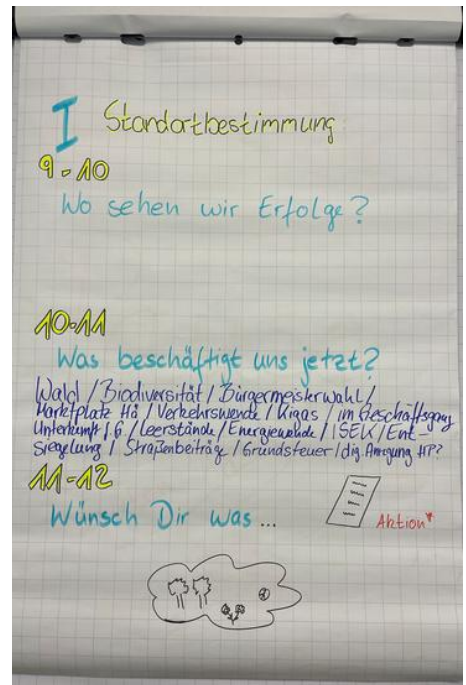 I Standortbestimmung
9-10
Wo sehen wir Erfolge?
10-11
Was beschäftigt uns jetzt?
Wald / Biodiversität / Bürgermeisterwahl /
Marktplatz Hö / Verkehrswende / Kigas / im Geschäftsgang
Unterkunft / Leerstände / Energiewende / ISEK / Ent-
siegelung / Straßenbeiträge / Grundsteuer / dig. HP?
11-12
Wünsch Dir was...
Aktion*